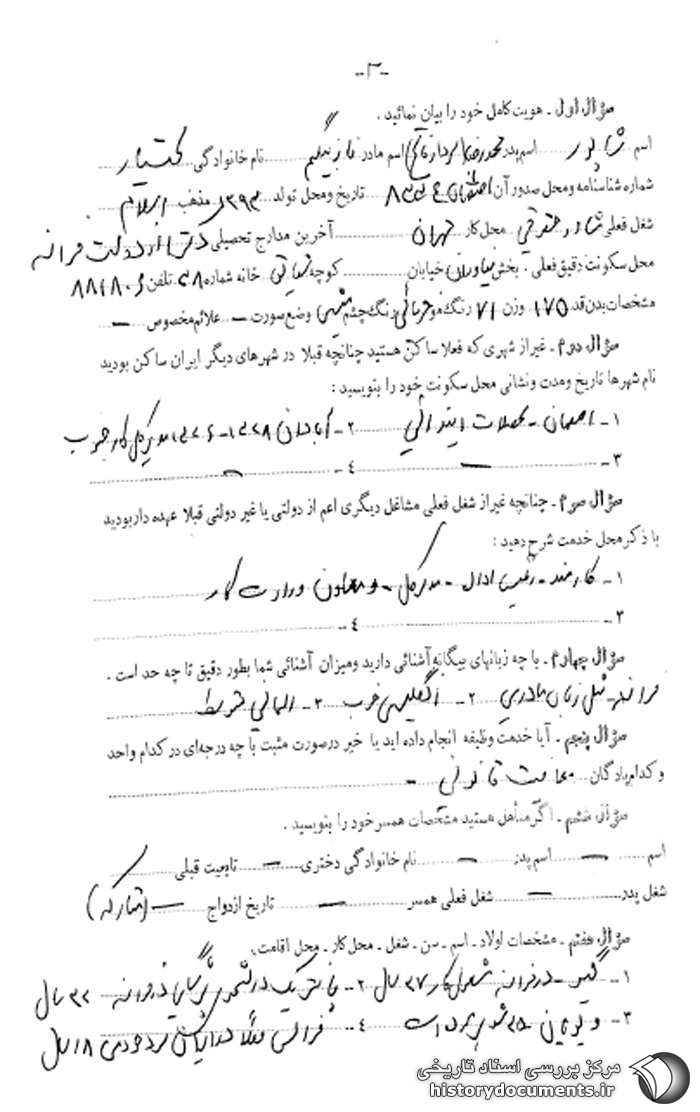 -۳-
سؤال اول - هویت کامل خود را بیان نمائید .
اسم شاپور اسم پدر محمد رضا (سردار فاتح) اسم مادر ناز بیگم نام خانوادگی بختیار
شماره شناسنامه و محل صدور آن تاریخ و محل تولد ۱۲۹۳ مذهب اسلام
شغل فعلی مشاور حقوقی محل کار تهران آخرین مدارج تحصیلی دکترا از دولت فرانسه
محل سکونت دقیق فعلی . بخش نیاوران خیابان کوچه خانه شماره تلفن
مشخصات بدن قد ۱۷۵ وزن ۷۱ رنگ مو خرمائی رنگ چشم میشی وضع صورت - علائم مخصوص -
سؤال دوم - غیر از شهری که فعلا ساکن هستید چنانچه قبلا در شهرهای دیگر ایران ساکن بودید
نام شهرها تاریخ و مدت و نشانی محل سکونت خود را بنویسید :
۱- اصفهان - تحصیلات ابتدائی ۲- آبادان مدیر کل کار جنوب
۳- - ۴- -
سؤال سوم - چنانچه غیر از شغل فعلی مشاغل دیگری اعم از دولتی یا غیر دولتی قبلا عهده دار بودید
با ذکر محل خدمت شرح دهید :
۱- کارمند - رئیس اداره - مدیر کل - و معاون وزارت کار
۳- ۴-
سؤال چهارم - با چه زبانهای بیگانه آشنائی دارید و میزان آشنائی شما بطور دقیق تا چه حد است .
فرانسه - مثل زبان مادری ۲- انگلیسی خوب ۳- آلمانی متوسط
سؤال پنجم - آیا خدمت وظیفه انجام داده اید یا خیر در صورت مثبت با چه درجه ای در کدام واحد
و کدام پادگان معافیت قانونی -
سؤال ششم - اگر متأهل هستید مشخصات همسر خود را بنویسید .
اسم - اسم پدر - نام خانوادگی دختری - تابعیت قبلی
شغل پدر - شغل فعلی همسر - تاریخ ازدواج - (متارکه)
سؤال هفتم - مشخصات اولاد - اسم - سن - شغل - محل کار - محل اقامت .
۱- گیو - در فرانسه مشغول کار ۳۷ سال ۲- پاتریک در فرانسه ۳۲ سال
۳- ویویان ۴- فرانس ۱۸ سال
مرکز بررسی اسناد تاریخی
historydocuments.ir